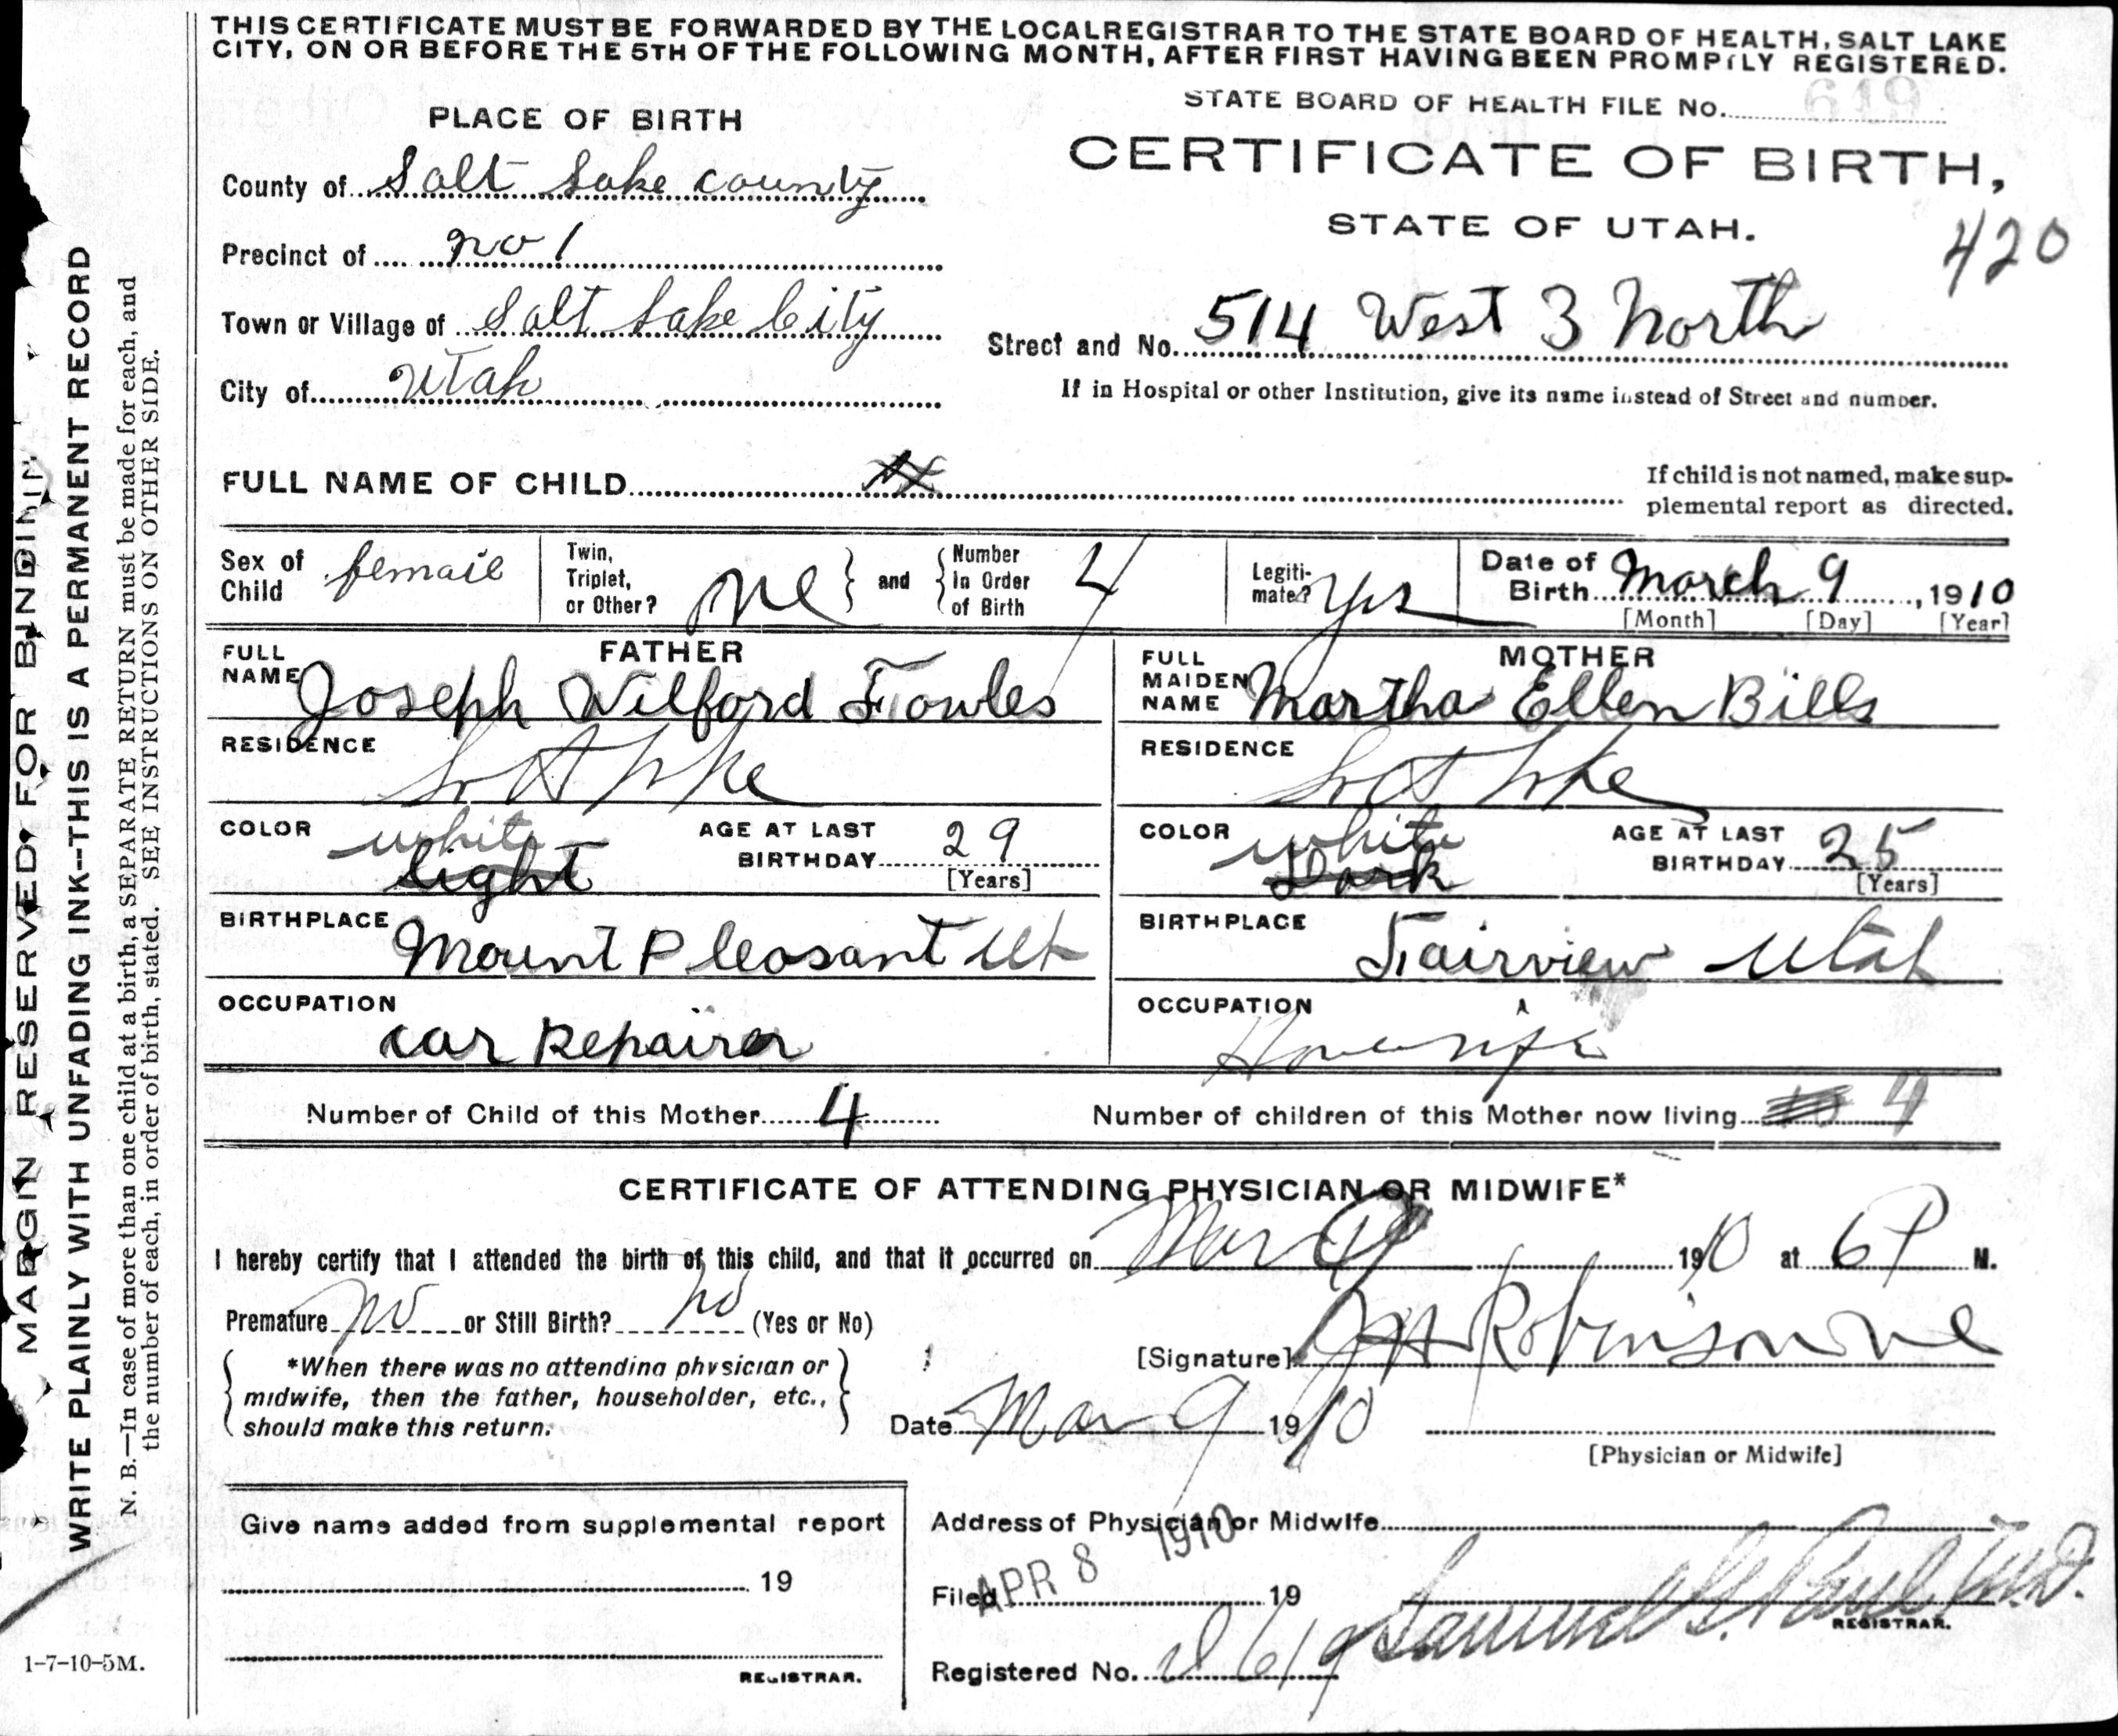 THIS CERTIFICATE MUST BE FORWARDED BY THE LOCAL REGISTRAR TO THE STATE BOARD OF HEALTH, SALT LAKE
CITY, ON OR BEFORE THE 5TH OF THE FOLLOWING MONTH, AFTER FIRST HAVING BEEN PROMPTLY REGISTERED.
STATE BOARD OF HEALTH FILE No. 619
PLACE OF BIRTH
CERTIFICATE OF BIRTH,
STATE OF UTAH.
420
County of Salt Lake County
Precinct of no 1
Town or Village of Salt Lake City
City of Utah
Street and No. 514 West 3 North
If in Hospital or other Institution, give its name instead of Street and number.
FULL NAME OF CHILD
If child is not named, make sup-
plemental report as directed.
Sex of Child female
Twin, Triplet, or Other?
and
Number in Order of Birth 4
Legiti-mate? Yes
Date of Birth March 9, 1910
[Month] [Day] [Year]
FATHER
FULL NAME Joseph Wilford Fowles
RESIDENCE
COLOR white light
AGE AT LAST BIRTHDAY 29
[Years]
BIRTHPLACE Mount Pleasant Ut
OCCUPATION car Repairer
MOTHER
FULL MAIDEN NAME Martha Ellen Bills
RESIDENCE
COLOR white Dark
AGE AT LAST BIRTHDAY 25
[Years]
BIRTHPLACE Fairview Utah
OCCUPATION Housewife
Number of Child of this Mother 4
Number of children of this Mother now living 4
CERTIFICATE OF ATTENDING PHYSICIAN OR MIDWIFE*
I hereby certify that I attended the birth of this child, and that it occurred on Mar 9 1910 at 6 P M.
Premature no or Still Birth? no (Yes or No)
*When there was no attending physician or
midwife, then the father, householder, etc.,
should make this return.
[Signature]
Date Mar 9 1910
[Physician or Midwife]
Give name added from supplemental report
19
REGISTRAR.
Address of Physician or Midwife
Filed APR 8 1910 19
Samuel G. Paul M.D.
REGISTRAR.
Registered No. 619
MARGIN RESERVED FOR BINDING
WRITE PLAINLY WITH UNFADING INK--THIS IS A PERMANENT RECORD
N. B.—In case of more than one child at a birth, a SEPARATE RETURN must be made for each, and
the number of each, in order of birth, stated. SEE INSTRUCTIONS ON OTHER SIDE.
1-7-10-5M.